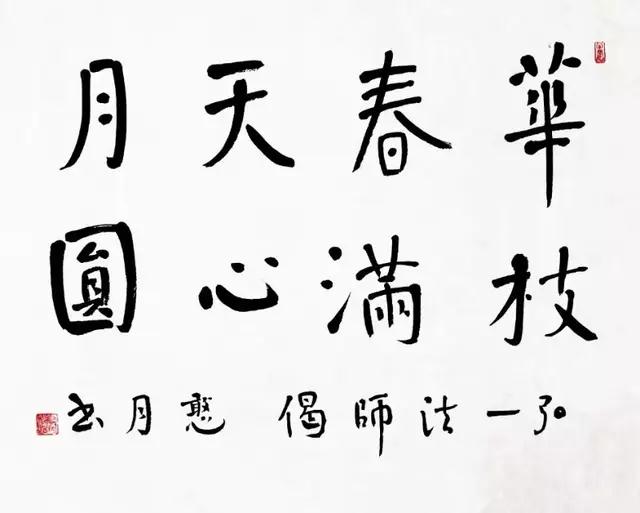 華枝
春滿
天心
月圓
弘一法師偈 憨月书